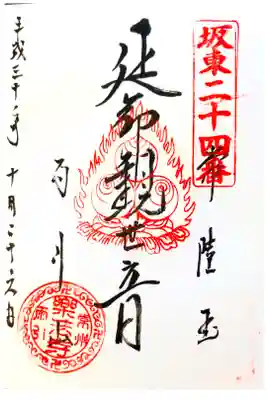 坂東二十四番
常陸国
延命観世音
雨引
平成三十年 十月二十六日
常州
樂法寺
雨引